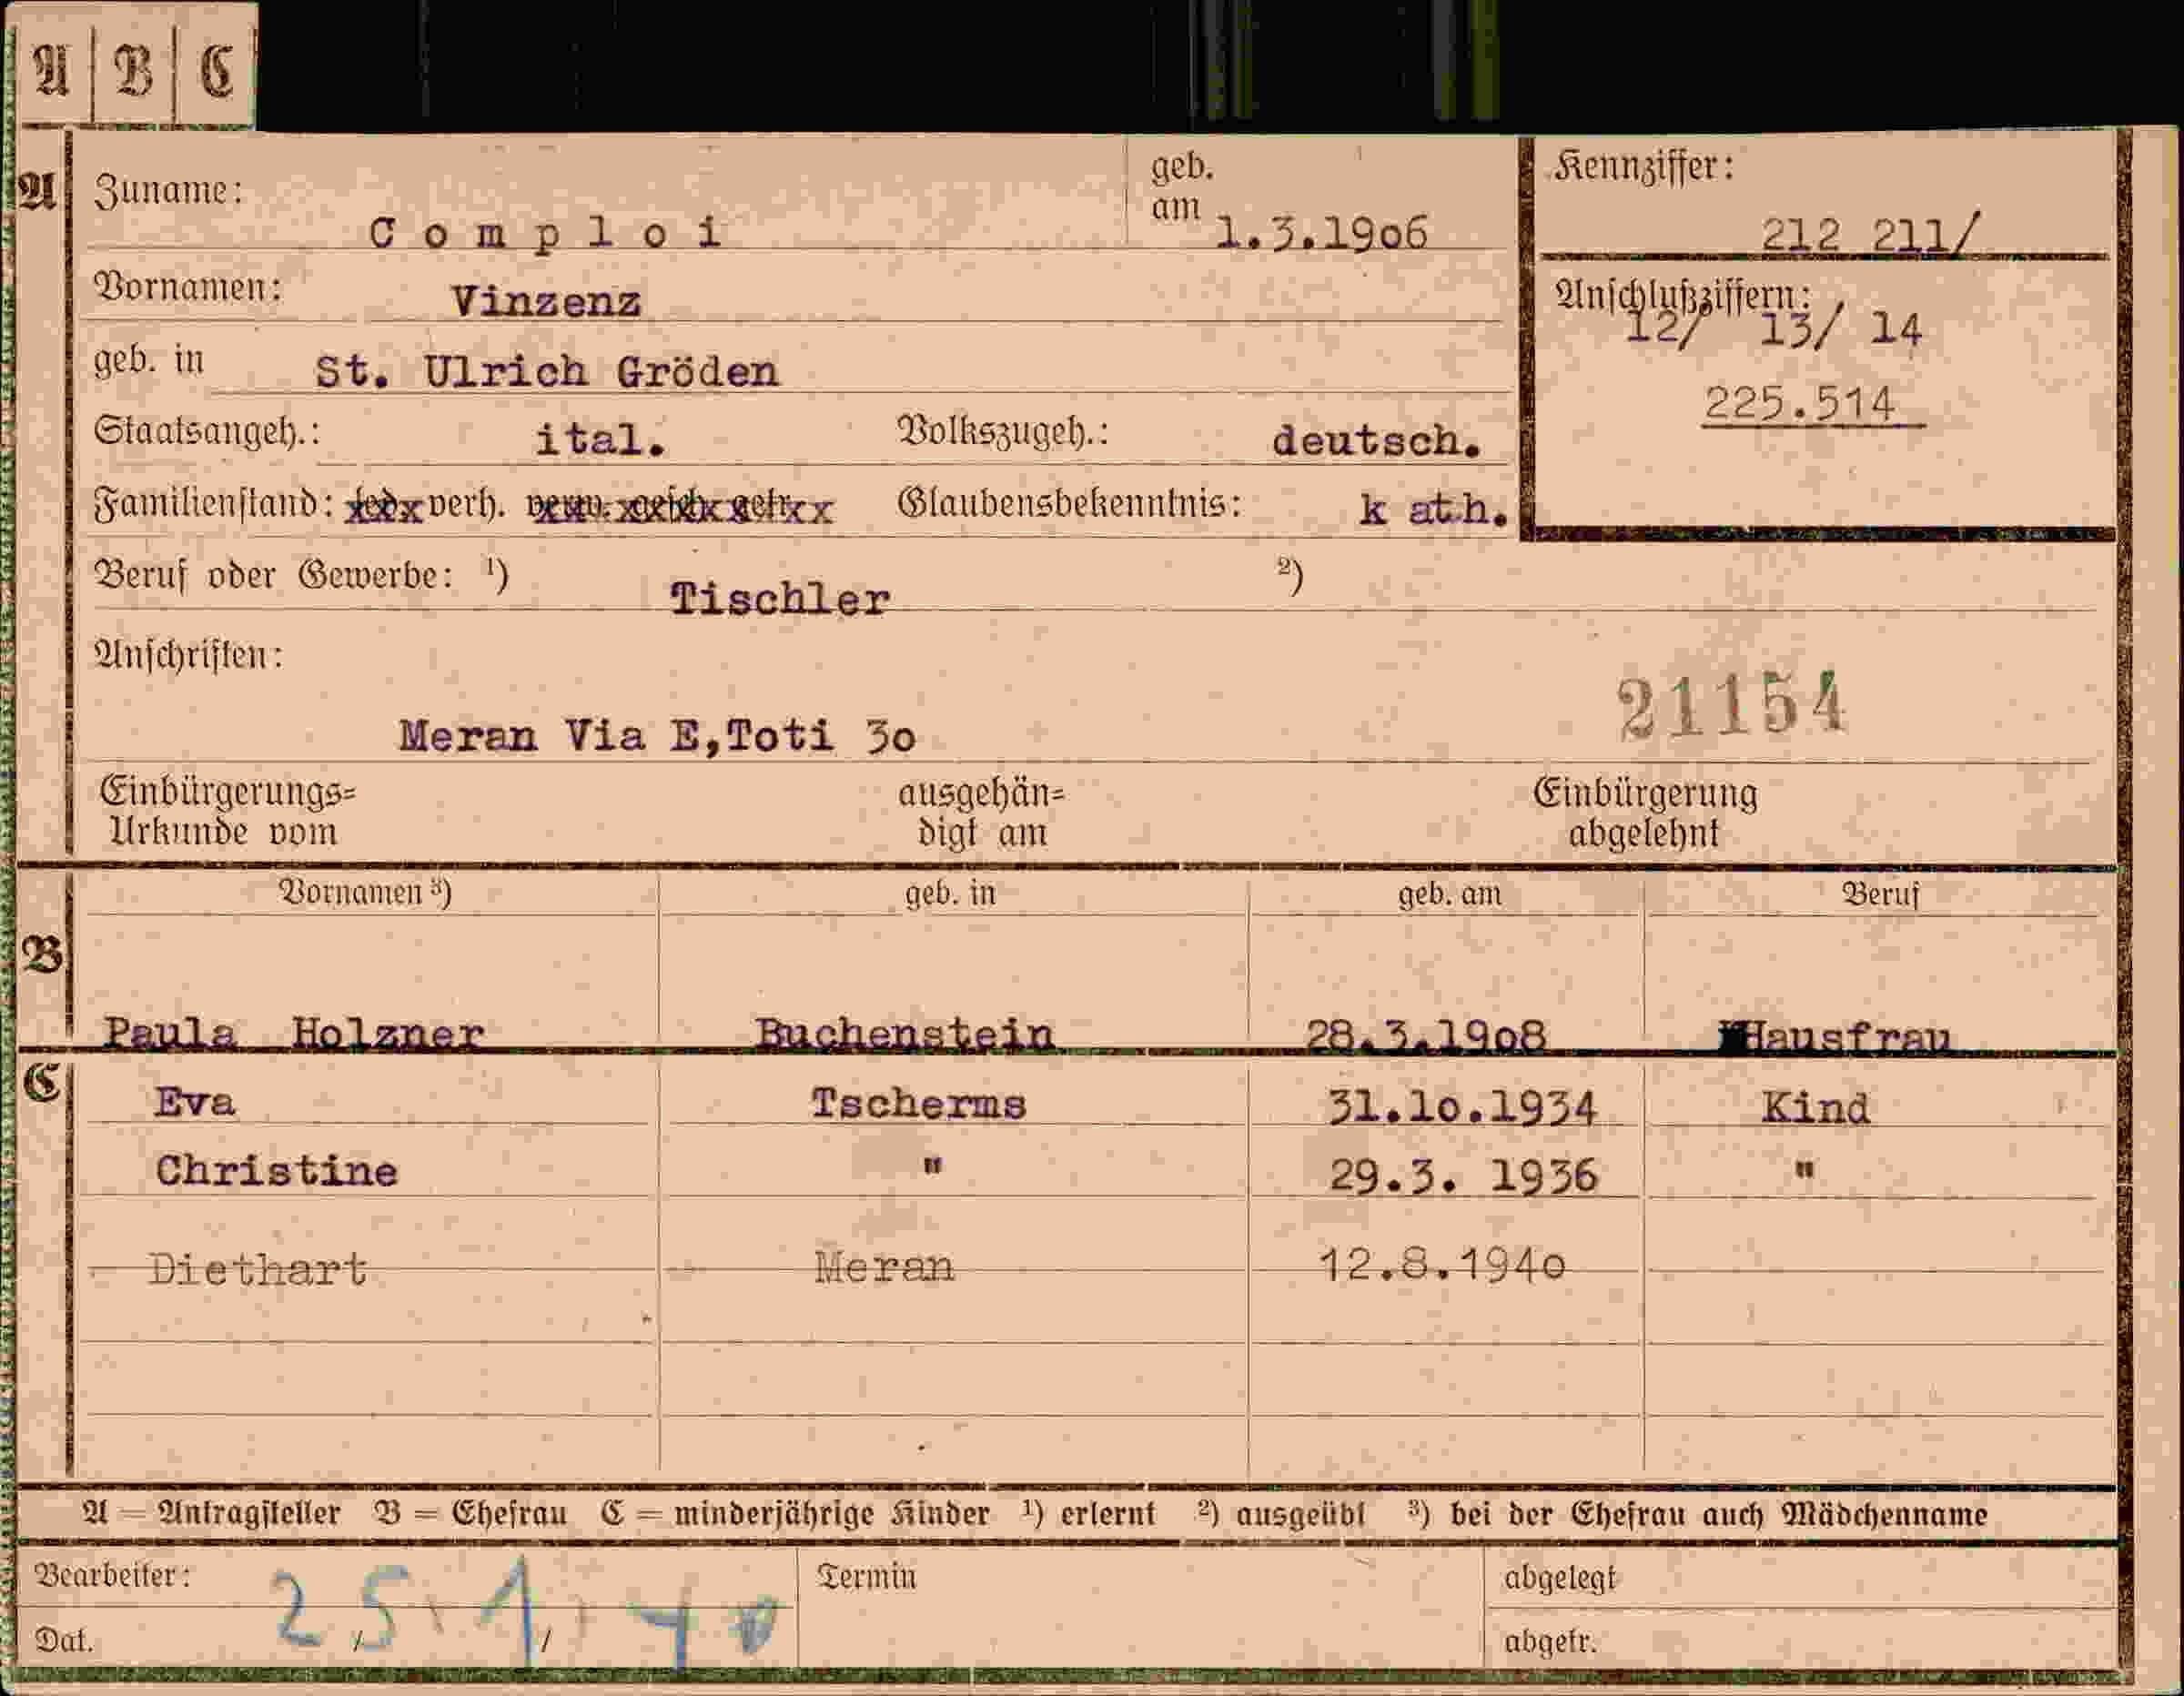 A B C
A
Zuname: Comploi geb. am 1.3.1906 Kennziffer: 212 211/
Vornamen: Vinzenz Anschlußziffern: 12/ 13/ 14
geb. in St. Ulrich Gröden 225.514
Staatsangeh.: ital. Volkszugeh.: deutsch.
Familienstand: led. verh. verw. gesch. getr. Glaubensbekenntnis: k ath.
Beruf oder Gewerbe: 1) Tischler 2)
Anschriften:
21154
Meran Via E,Toti 30
Einbürgerungs= ausgehän= Einbürgerung
Urkunde vom digt am abgelehnt
Vornamen 3) geb. in geb. am Beruf
B
Paula Holzner Buchenstein 28.3.1908 Hausfrau
C
Eva Tscherms 31.10.1934 Kind
Christine " 29.3. 1936 "
Diethart Meran 12.8.1940
A = Antragsteller B = Ehefrau C = minderjährige Kinder 1) erlernt 2) ausgeübt 3) bei der Ehefrau auch Mädchenname
Bearbeiter: Termin abgelegt
25. 1. 40
Dat. / / abgetr.